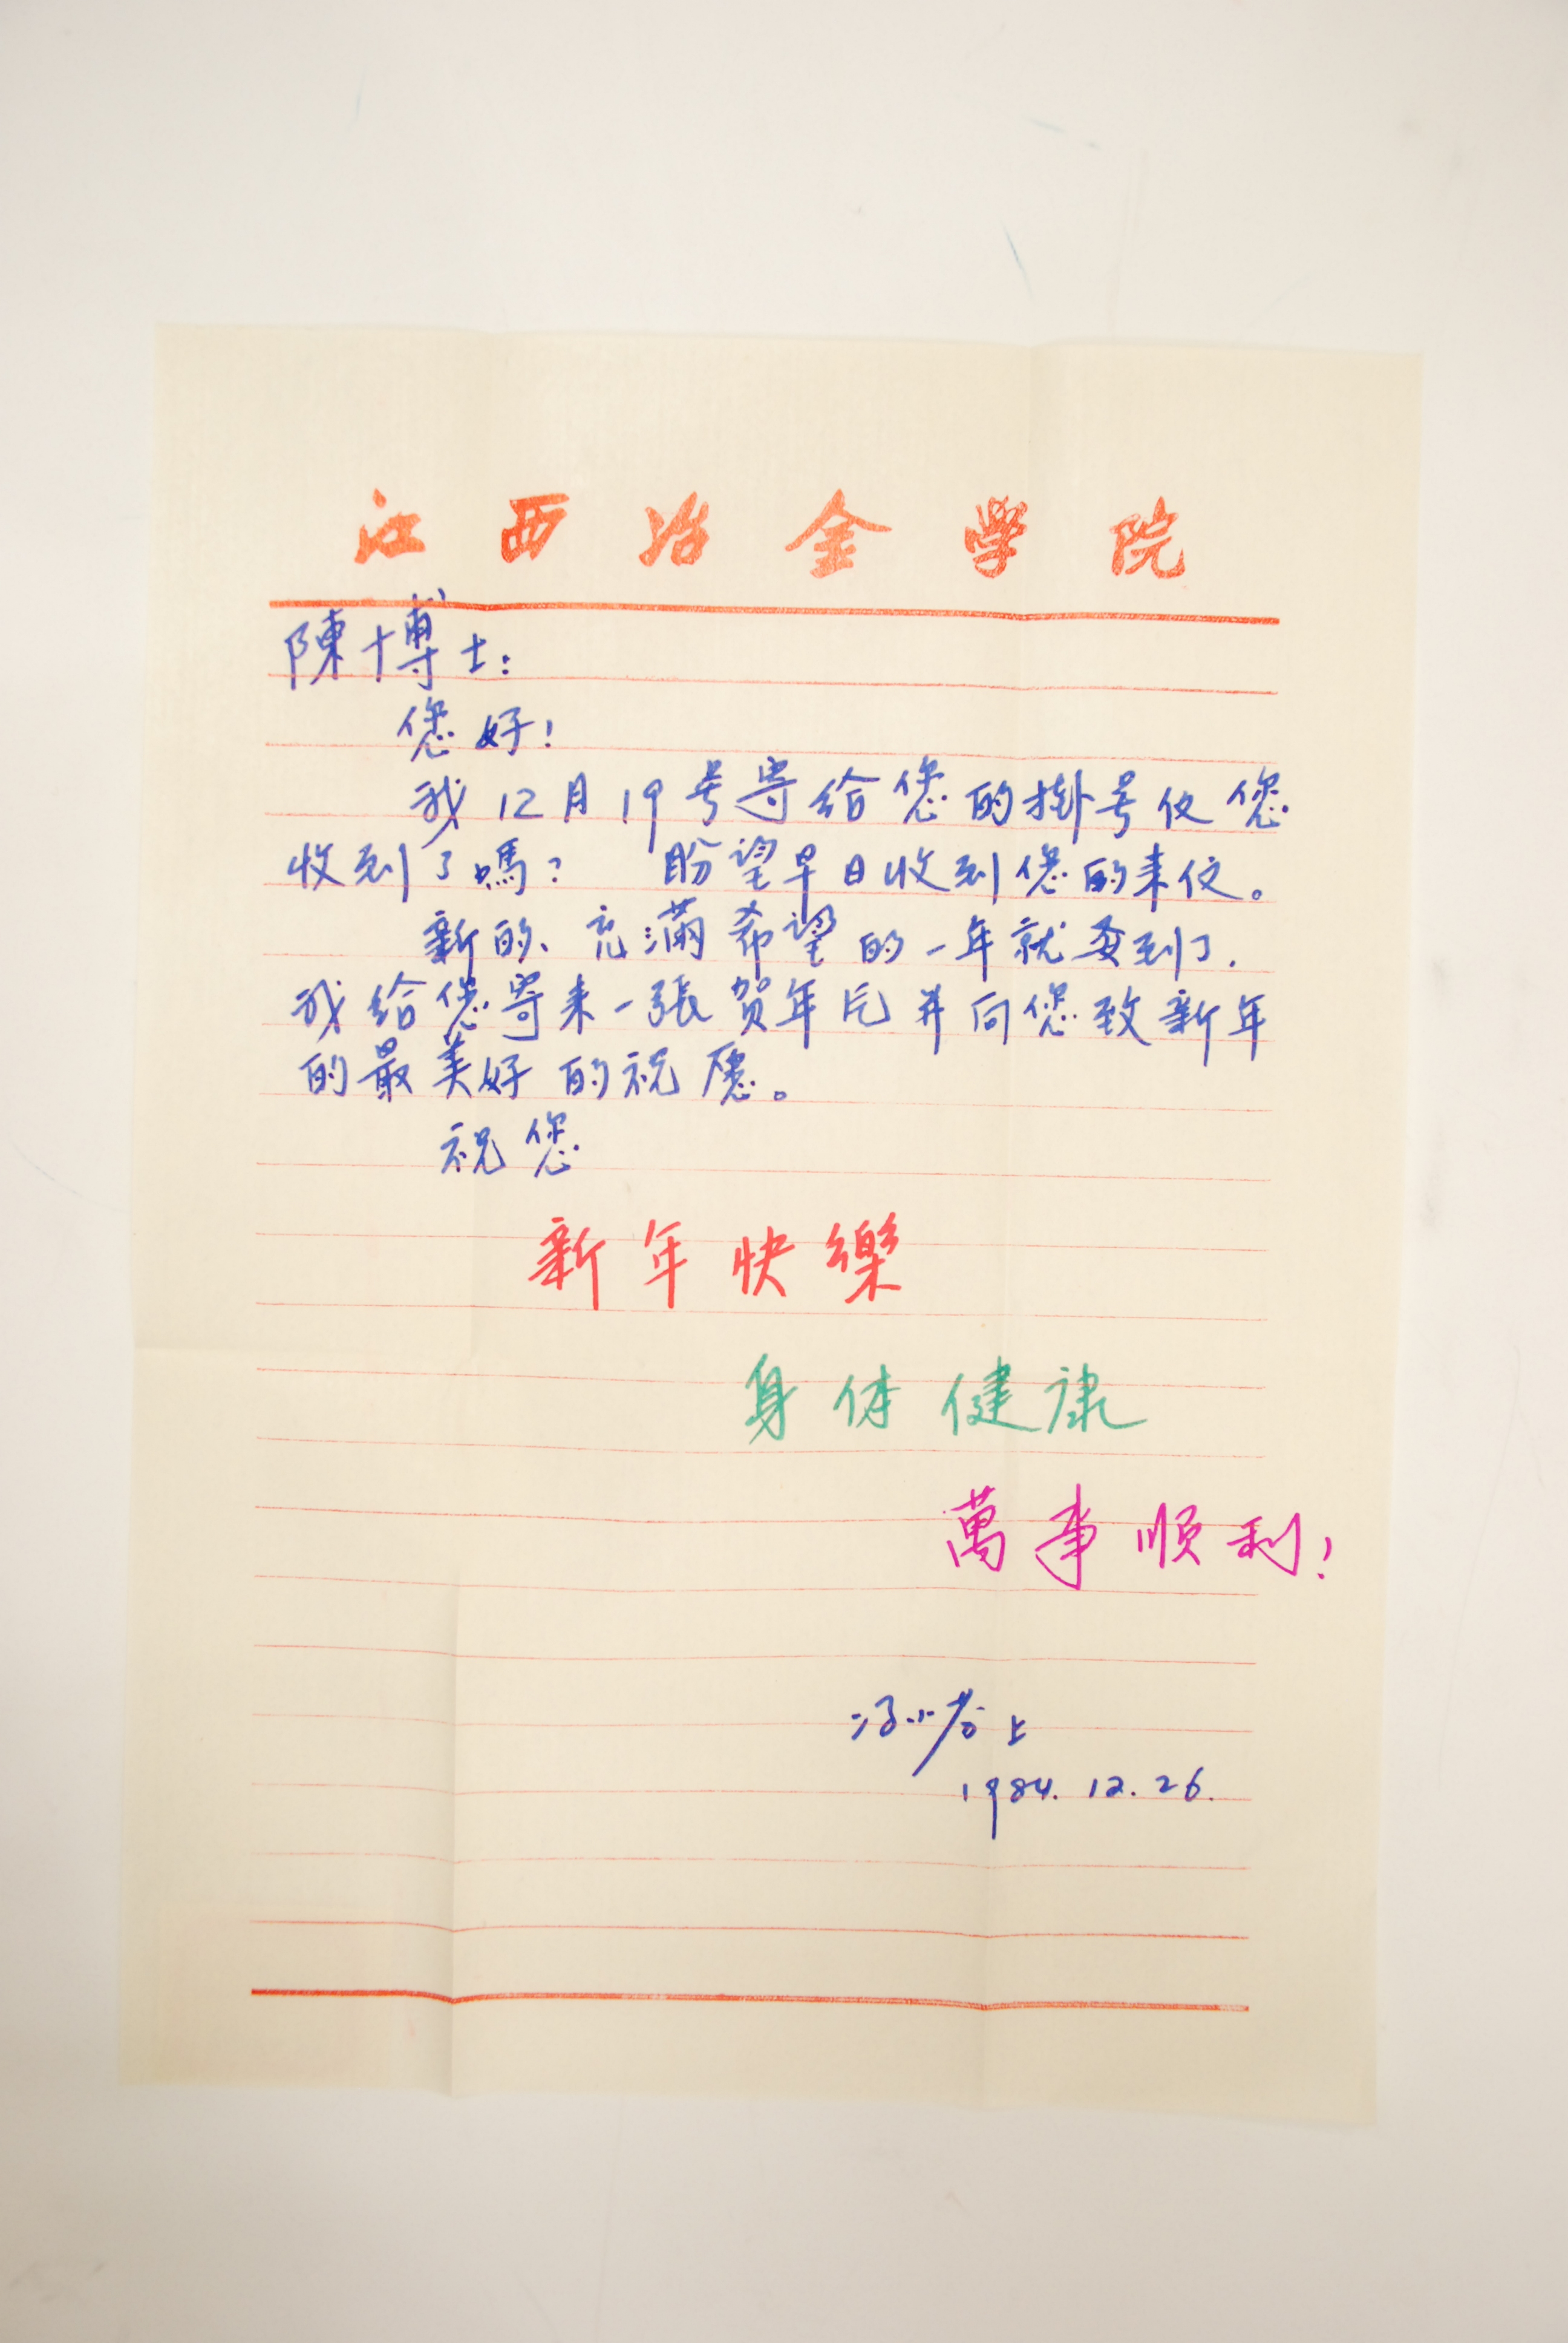 江西冶金學院
陳博士:
您好!
我12月19号寄给您的掛号信您
收到了嗎? 盼望早日收到您的来信。
新的、充满希望的一年就要到了.
我给您寄来一張贺年片并向您致新年
的最美好的祝愿。
祝您
新年快樂
身体健康
萬事顺利!
冯小 上
1984.12.26.